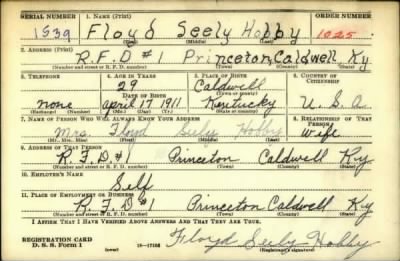 SERIAL NUMBER 1. NAME (Print) ORDER NUMBER
1539 Floyd Seely Hobby 1025
(First) (Middle) (Last)
2. ADDRESS (Print)
R.F.D #1 Princeton, Caldwell Ky
(Number and street or R. F. D. number) (Town) (County) (State)
3. TELEPHONE 4. AGE IN YEARS 5. PLACE OF BIRTH 6. COUNTRY OF CITIZENSHIP
29 Caldwell
DATE OF BIRTH (Town or county)
none April 17 1911 Kentucky U. S. A
(Exchange) (Number) (Mo.) (Day) (Yr.) (State or country)
7. NAME OF PERSON WHO WILL ALWAYS KNOW YOUR ADDRESS 8. RELATIONSHIP OF THAT PERSON
Mrs. Floyd Seely Hobby Wife
(Mr., Mrs., Miss) (First) (Middle) (Last)
9. ADDRESS OF THAT PERSON
R.F.D#1 Princeton Caldwell Ky
(Number and street or R. F. D. number) (Town) (County) (State)
10. EMPLOYER'S NAME
Self
11. PLACE OF EMPLOYMENT OR BUSINESS
R.F.D#1 Princeton Caldwell Ky
(Number and street or R. F. D. number) (Town) (County) (State)
I AFFIRM THAT I HAVE VERIFIED ABOVE ANSWERS AND THAT THEY ARE TRUE.
REGISTRATION CARD
D. S. S. Form 1 (over) Floyd Seely Hobby
(Registrant's signature)